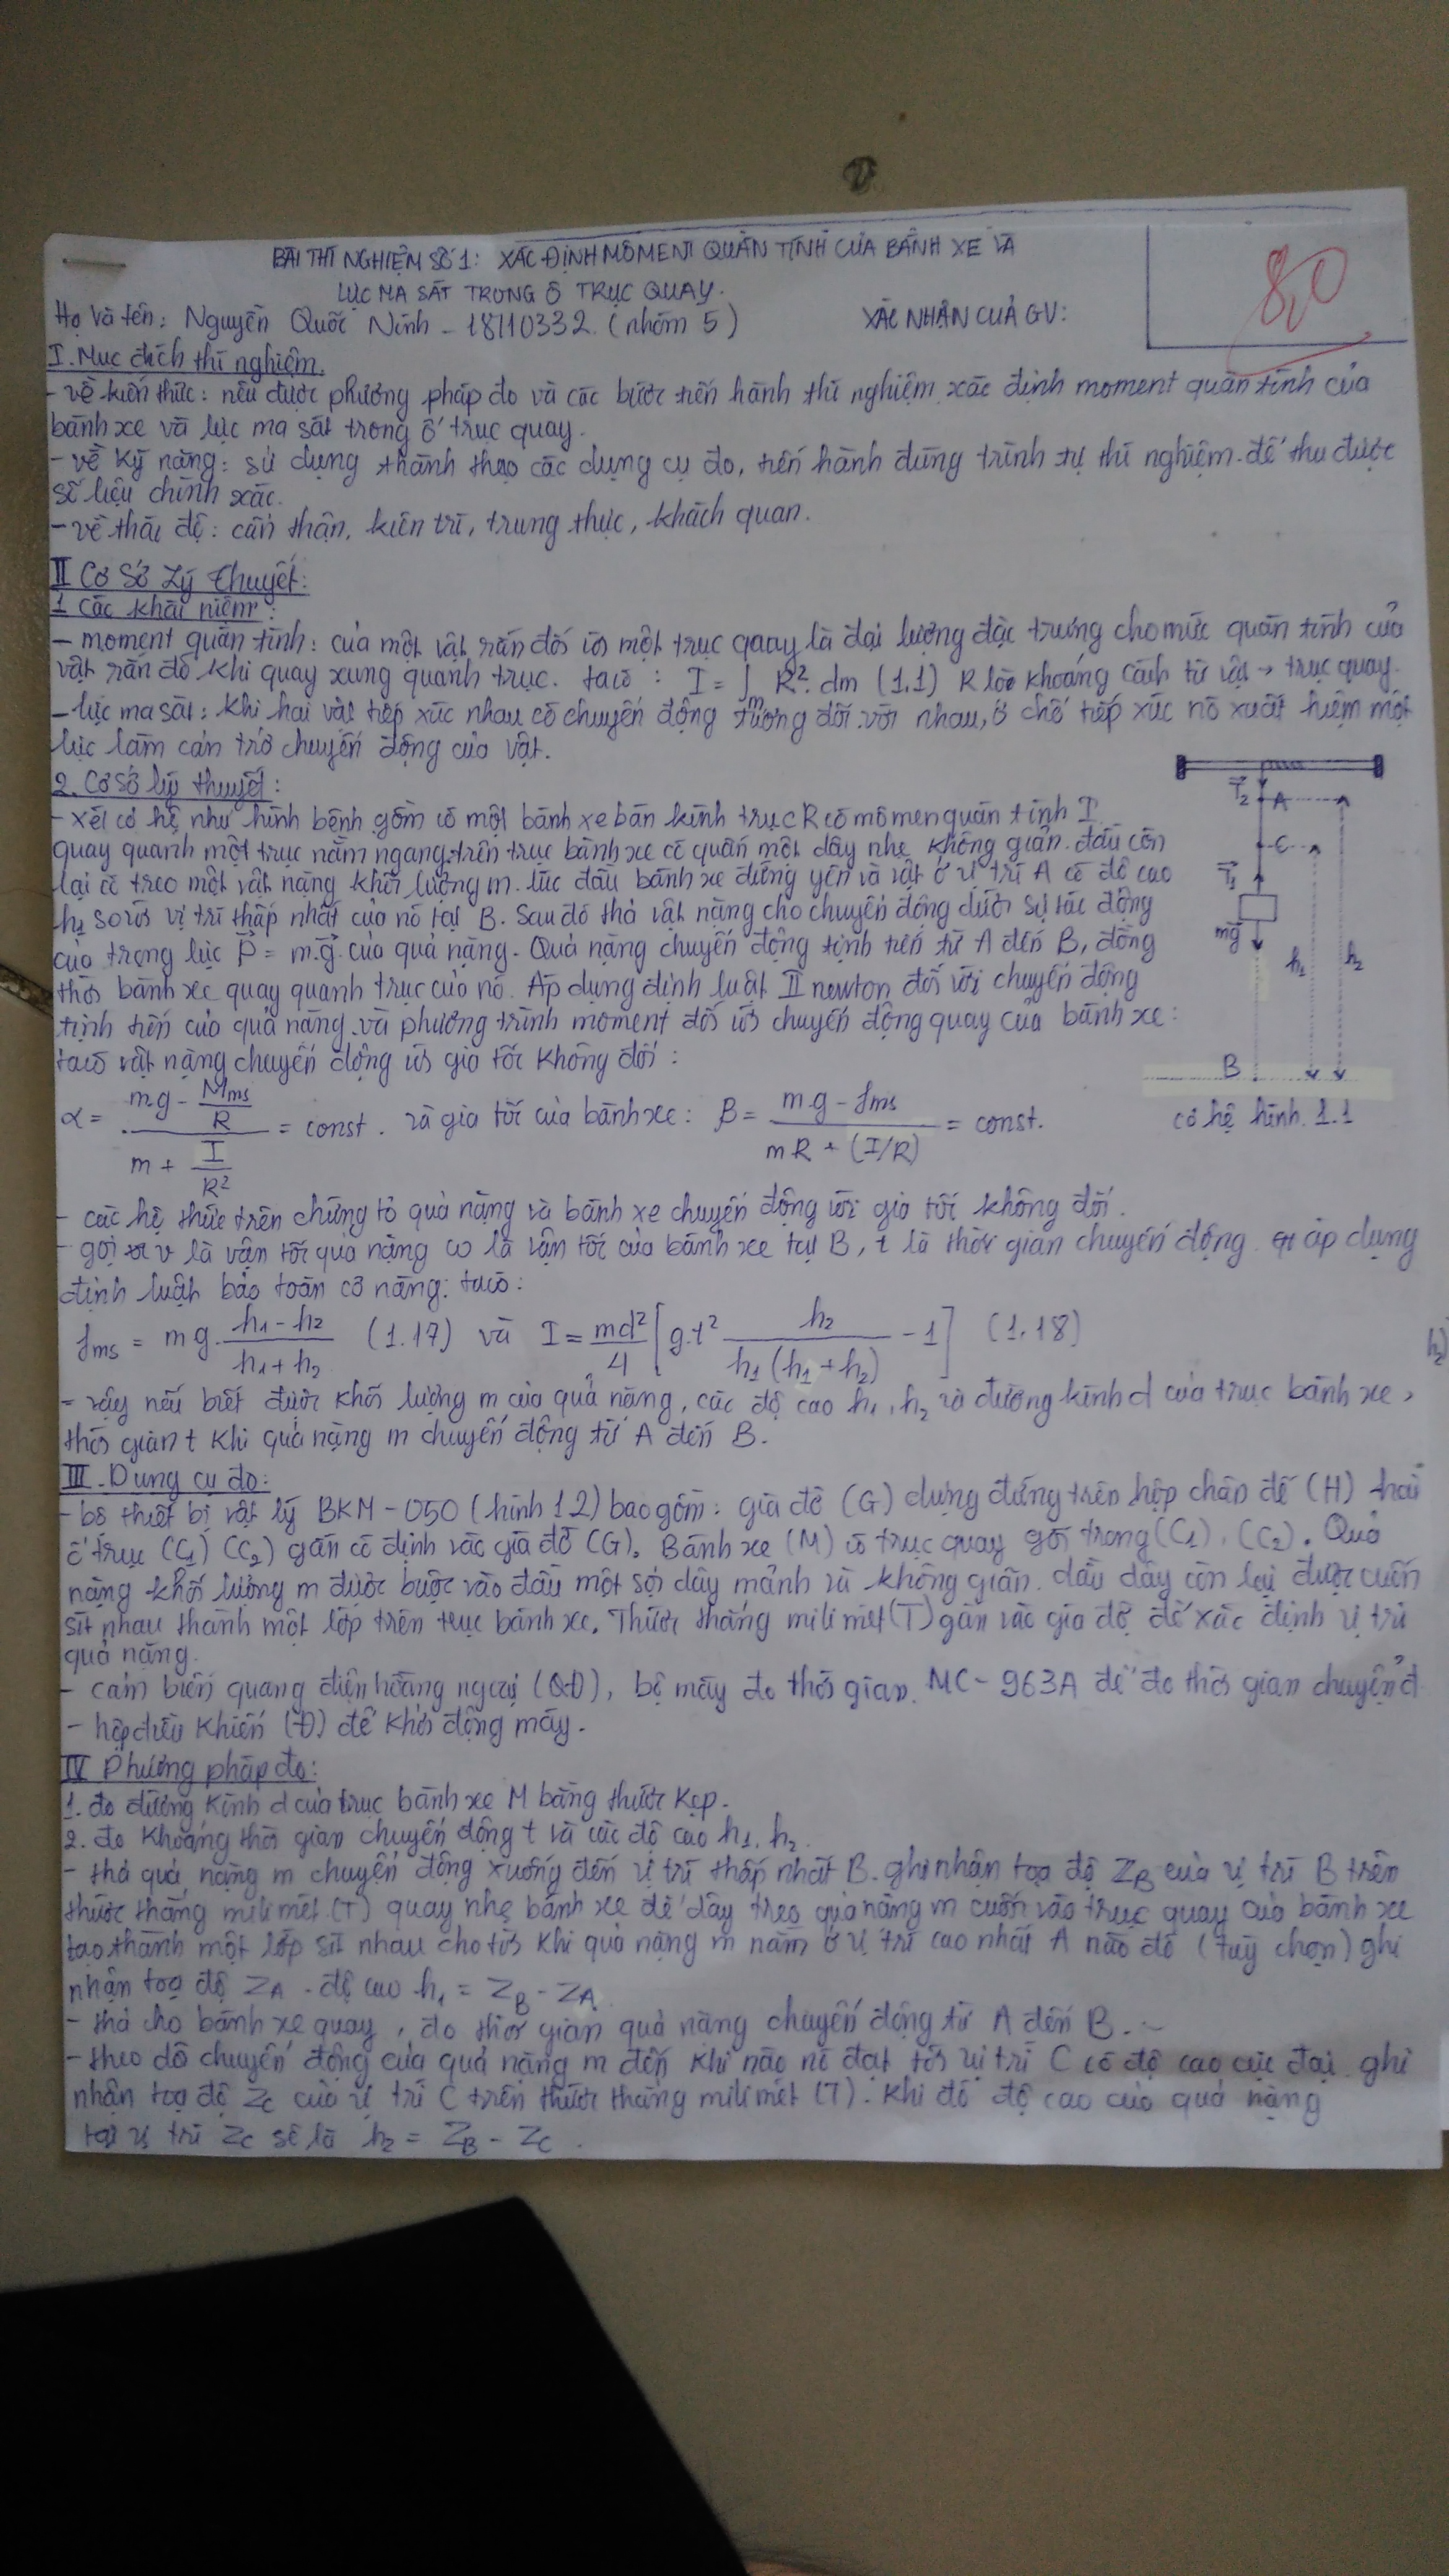 BÀI THÍ NGHIỆM SỐ 1: XÁC ĐỊNH MÔMENT QUÁN TÍNH CỦA BÁNH XE VÀ
LỰC MA SÁT TRONG Ổ TRỤC QUAY.
8,0
Họ và tên: Nguyễn Quốc Ninh - 18110332. (nhóm 5)
XÁC NHẬN CỦA GV:
I. Mục đích thí nghiệm.
- về kiến thức: nêu được phương pháp đo và các bước tiến hành thí nghiệm xác định moment quán tính của
bánh xe và lực ma sát trong ổ trục quay.
- về kỹ năng: sử dụng thành thạo các dụng cụ đo, tiến hành đúng trình tự thí nghiệm để thu được
số liệu chính xác.
- về thái độ: cẩn thận, kiên trì, trung thực, khách quan.
II Cơ Sở Lý thuyết:
1 các khái niệm:
- moment quán tính: của một vật rắn đối với một trục quay là đại lượng đặc trưng cho mức quán tính của
vật rắn đó khi quay xung quanh trục. ta có: I = ∫m R². dm (1.1) R là khoảng cách từ vật → trục quay.
- lực ma sát: khi hai vật tiếp xúc nhau có chuyển động tương đối với nhau, ở chỗ tiếp xúc nó xuất hiện một
lực làm cản trở chuyển động của vật.
2. Cơ sở lý thuyết:
- xét cơ hệ như hình bênh gồm có một bánh xe bán kính trục R có mômen quán tính I
quay quanh một trục nằm ngang, trên trục bánh xe có quấn một dây nhẹ không giãn. đầu còn
lại có treo một vật nặng khối lượng m. lúc đầu bánh xe đứng yên và vật ở vị trí A có độ cao
h₁ so với vị trí thấp nhất của nó tại B. Sau đó thả vật nặng cho chuyển động dưới sự tác động
của trọng lực P = m.g của quả nặng. Quả nặng chuyển động tịnh tiến từ A đến B, đồng
thời bánh xe quay quanh trục của nó. Áp dụng định luật II newton đối với chuyển động
tịnh tiến của quả nặng và phương trình moment đối với chuyển động quay của bánh xe:
ta có vật nặng chuyển động với gia tốc không đổi:
T₂ A
C
T₁
mg
h₁ h₂
B
cơ hệ hình. 1.1
α = (mg - Mms/R) / (m + I/R²) = const. và gia tốc của bánh xe: β = (m.g - fms) / (mR + (I/R)) = const.
- các hệ thức trên chứng tỏ quả nặng và bánh xe chuyển động với gia tốc không đổi.
- gọi v là vận tốc quả nặng ω là vận tốc của bánh xe tại B, t là thời gian chuyển động. áp dụng
định luật bảo toàn cơ năng: ta có:
fms = mg. (h₁ - h₂)/(h₁ + h₂) (1.17) và I = md²/4 [g.t² h₂/(h₁(h₁ + h₂)) - 1] (1.18)
- vậy nếu biết được khối lượng m của quả nặng, các độ cao h₁, h₂ và đường kính d của trục bánh xe,
thời gian t khi quả nặng m chuyển động từ A đến B.
III. Dụng cụ đo:
- bộ thiết bị vật lý BKM-050 (hình 1.2) bao gồm: giá đỡ (G) dựng đứng trên hộp chân đế (H) hai
ổ trục (C₁) (C₂) gắn cố định vào giá đỡ (G). Bánh xe (M) có trục quay gối trong (C₁), (C₂). Quả
nặng khối lượng m được buộc vào đầu một sợi dây mảnh và không giãn. đầu dây còn lại được cuốn
sít nhau thành một lớp trên trục bánh xe. Thước thẳng milimét (T) gắn vào giá đỡ để xác định vị trí
quả nặng.
- cảm biến quang điện hồng ngoại (QĐ), bộ máy đo thời gian MC-963A để đo thời gian chuyển đ
- hộp điều khiển (Đ) để khởi động máy.
IV Phương pháp đo:
1. đo đường kính d của trục bánh xe M bằng thước kẹp.
2. đo khoảng thời gian chuyển động t và các độ cao h₁, h₂.
- thả quả nặng m chuyển động xuống đến vị trí thấp nhất B. ghi nhận toạ độ ZB của vị trí B trên
thước thẳng milimét (T) quay nhẹ bánh xe để dây treo quả nặng m cuốn vào trục quay của bánh xe
tạo thành một lớp sít nhau cho tới khi quả nặng m nằm ở vị trí cao nhất A nào đó (tuỳ chọn) ghi
nhận toạ độ ZA. độ cao h₁ = ZB - ZA
- thả cho bánh xe quay, đo thời gian quả nặng chuyển động từ A đến B.
- theo dõi chuyển động của quả nặng m đến khi nào nó đạt tới vị trí C có độ cao cực đại. ghi
nhận toạ độ Zc của vị trí C trên thước thẳng milimét (T). khi đó độ cao của quả nặng
tại vị trí Zc sẽ là h₂ = ZB - Zc.